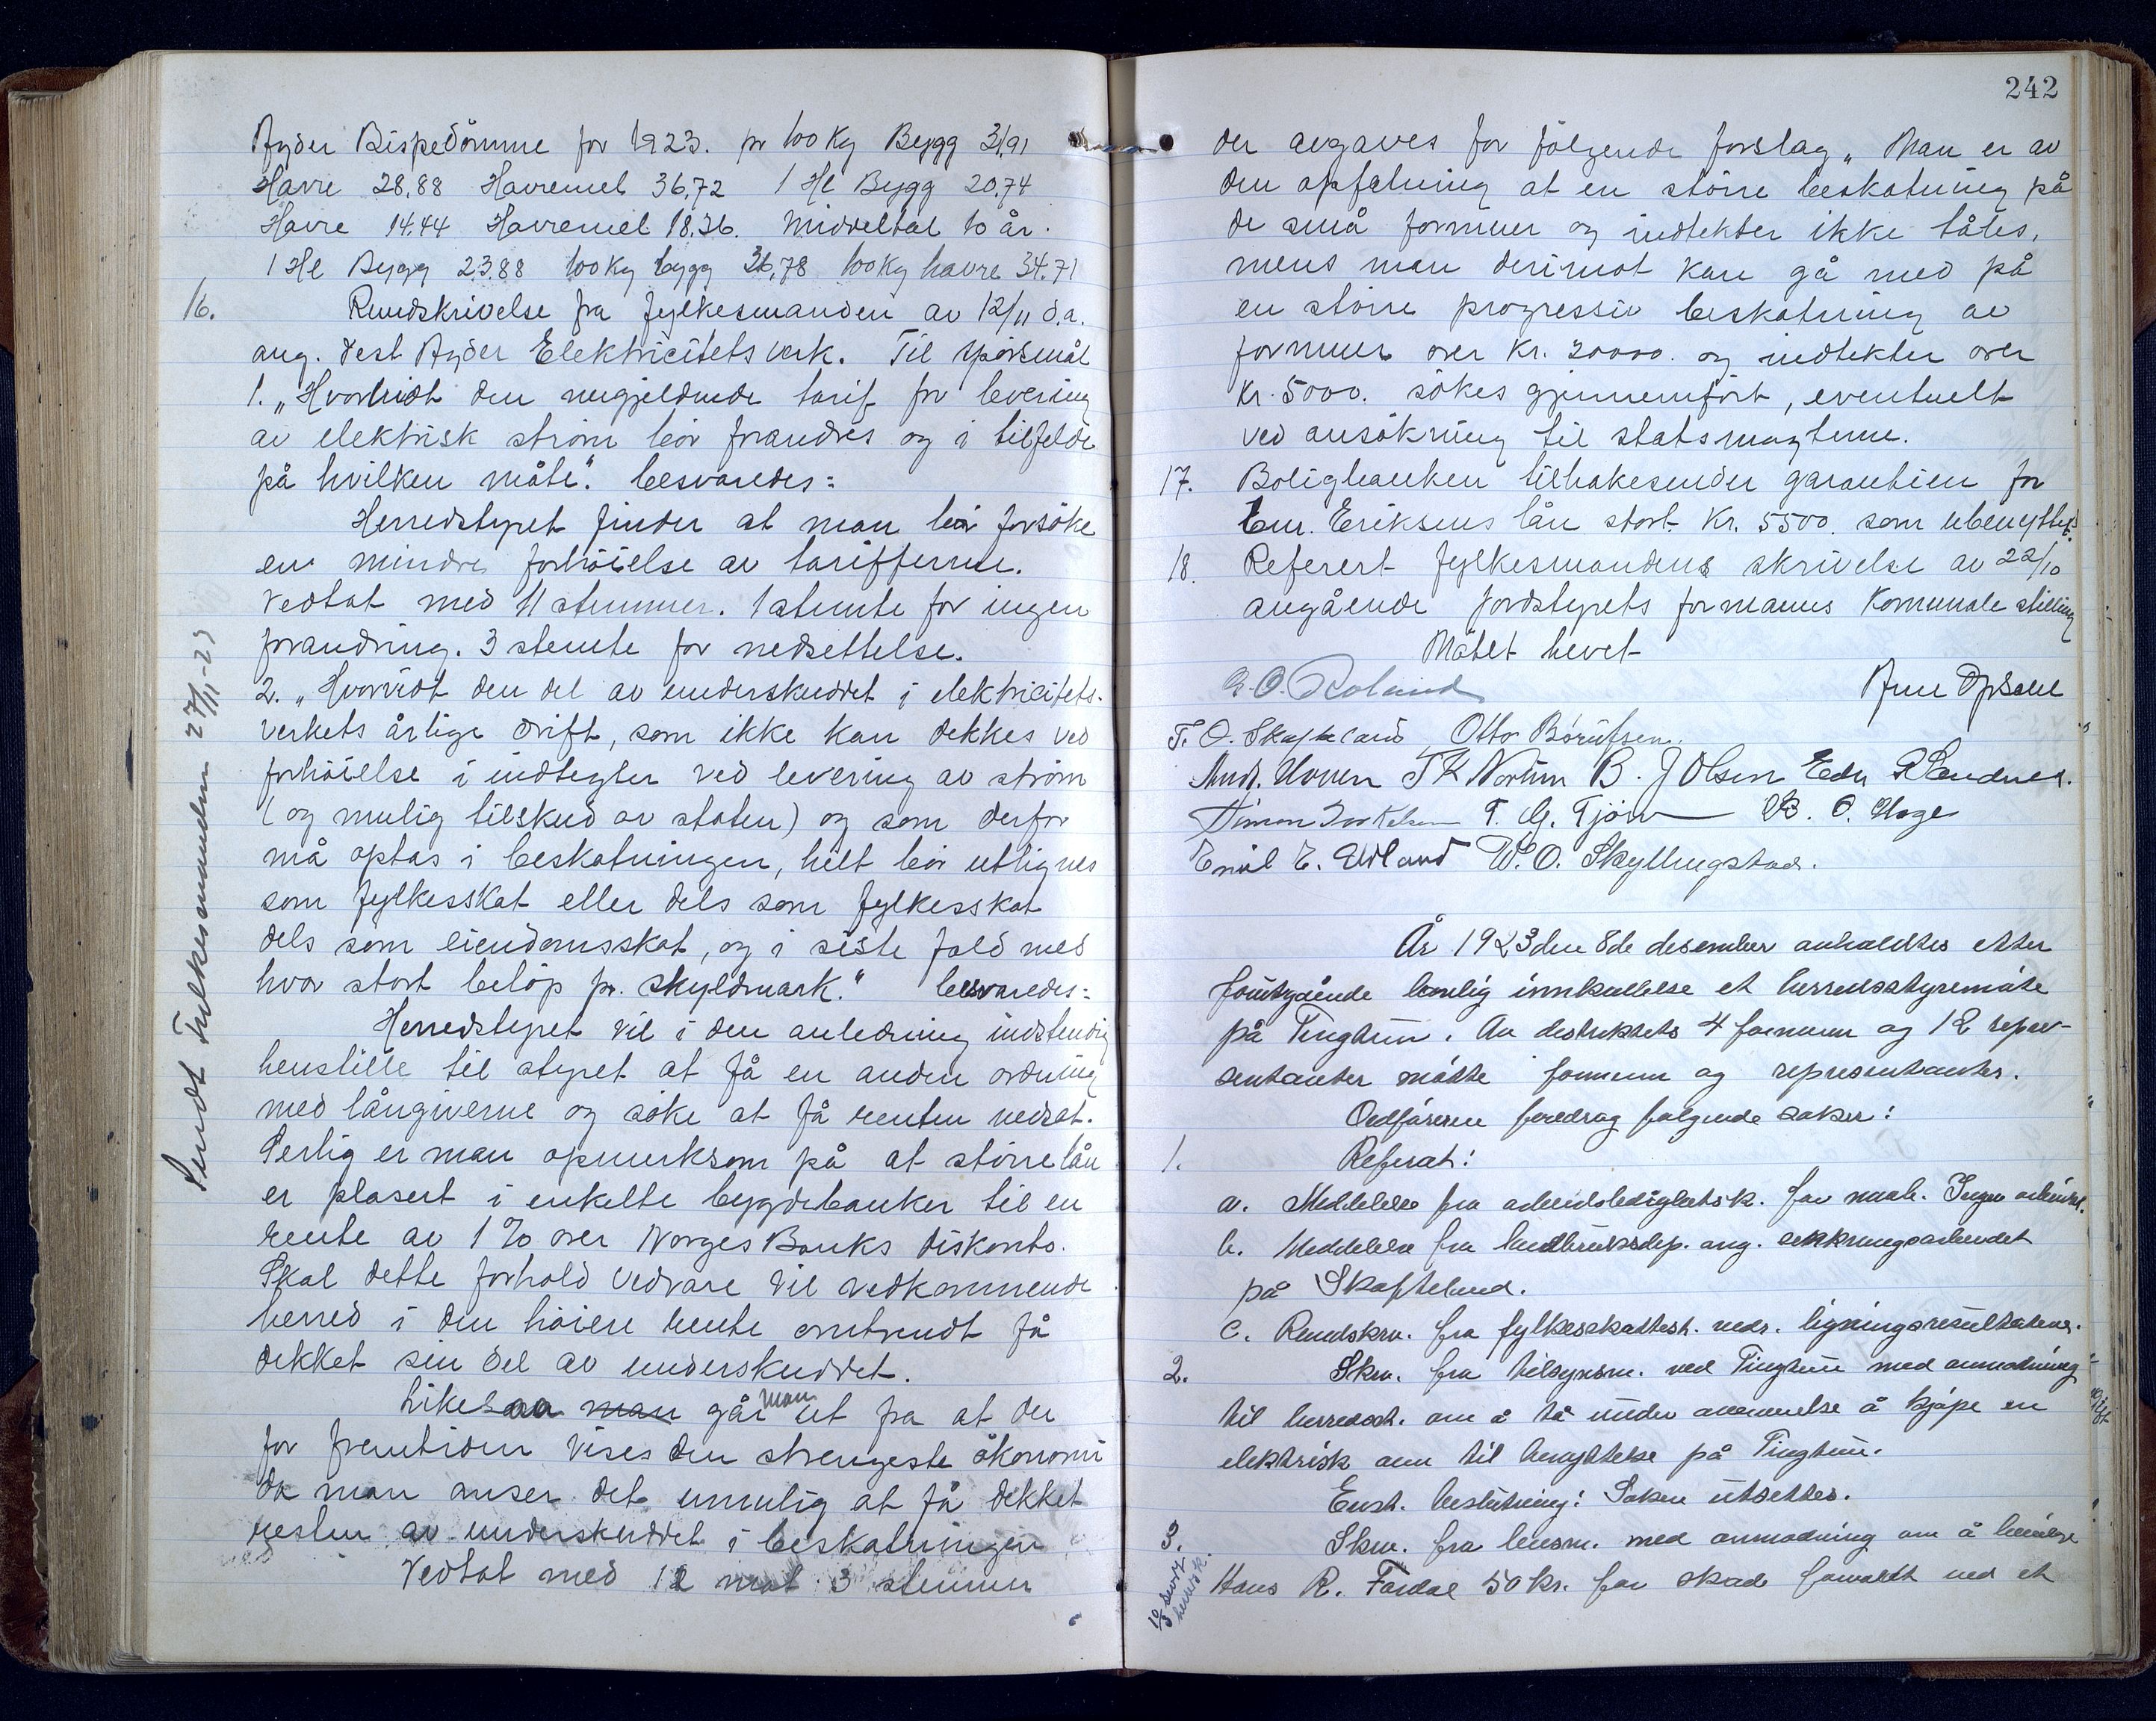 Agder Bispedömme for 1923. pr 100 Kg Bygg 31,91
Havre 28,88 Havremel 36,72 1 Hl Bygg 20,74
Havre 14.44 Havremel 18.36. Middeltal 10 år.
1 Hl Bygg 23.88 100 Kg bygg 36,78 100 Kg havre 34.71
16. Rundskrivelse fra fylkesmanden av 12/11 d.a.
ang. Vest Agder Elektricitetsverk. Til spörsmål
1. „Hvorvidt den nugjeldende tarif for levering
av elektrisk ström bör forandres og i tilfelde
på hvilken måte." besvaredes:
Herredstyret finder at man bör forsöke
en mindre forhöielse av tarifferne.
Vedtat med 11 stemmer. 1 stemte for ingen
forandring. 3 stemte for nedsettelse.
2. „Hvorvidt den del av underskuddet i elektricitets-
verkets årlige drift, som ikke kan dekkes ved
forhöielse i indtegter ved levering av ström
(og mulig tilskud av staten) og som derfor
må optas i beskatningen, helt bör utlignes
som fylkesskat eller dels som fylkesskat
dels som eiendomsskat, og i siste fald med
hvor stort belöp pr. skyldmark." besvaredes:
Herredstyret vil i den anledning indstendig
henstille til styret at få en anden ordning
med långiverne og söke at få renten nedsat.
Serlig er man opmerksom på at större lån
er plasert i enkelte bygdebanker til en
rente av 1% over Norges Banks diskonto.
Skal dette forhold vedvare vil vedkommende
herred i den höiere rente omtrendt få
dekket sin del av underskuddet.
Likesaa man går man ut fra at der
for fremtiden vises den strengeste ökonomi
da man anser det umulig at få dekket
resten av underskuddet i beskatningen
Vedtat med 12 mot 3 stemmer
Sendt Fylkesmanden 27/11-23
242
der avgaves for fölgende forslag „Man er av
den opfatning at en större beskatning på
de små formuer og indtekter ikke tåles,
mens man derimot kan gå med på
en större progressiv beskatning av
formuer over Kr. 20000. og indtekter over
Kr. 5000. sökes gjennemfört, eventuelt
ved ansökning til statsmagterne.
17. Boligbanken tilbakesender garantien for
Eriksens lån stort Kr. 5500. som ubenyttet.
18. Referert fylkesmandens skrivelse av 22/10
angående jordstyrets formanns Komunale stilling
Mötet hevet
G. O. Roland Arne Opsahl
T. O. Skofteland Otto Börufsen.
Andr. Usven T K Nortun B. J Olsen Edv. Sandnes.
Simon Torkelsen T. G. Tjörn B. O. Hoge
Emil E. Eidland W. O. Skyllingstad.
År 1923 den 8de desember anholdtes etter
foutgående lovlig innkallelse et herredsstyremöte
på Tingtun. Av distriktets 4 formenn og 12 repre-
sentanter mötte formenn og representanter.
Ordföreren foredrog fölgende saker:
1. Referat:
a. Meddelelse fra arbeidsledighetsk. for
b. Meddelelse fra landbruksdep. ang. senkningsarbeidet
på Skofteland.
c. Rundskrv. fra fylkesskattest. vedr. ligningsresultatene.
2. Skrv. fra tilsynsm. ved Tingtun med anmodning
til herredsst. om å ta under overveielse å kjöpe en
elektrisk ovn til benyttelse på Tingtun.
Enst. beslutning: Saken utsettes.
3. Skrv. fra lensm. med anmodning om å bevilge
Hans R. Fardal 50 kr. for skade forvoldt ved et